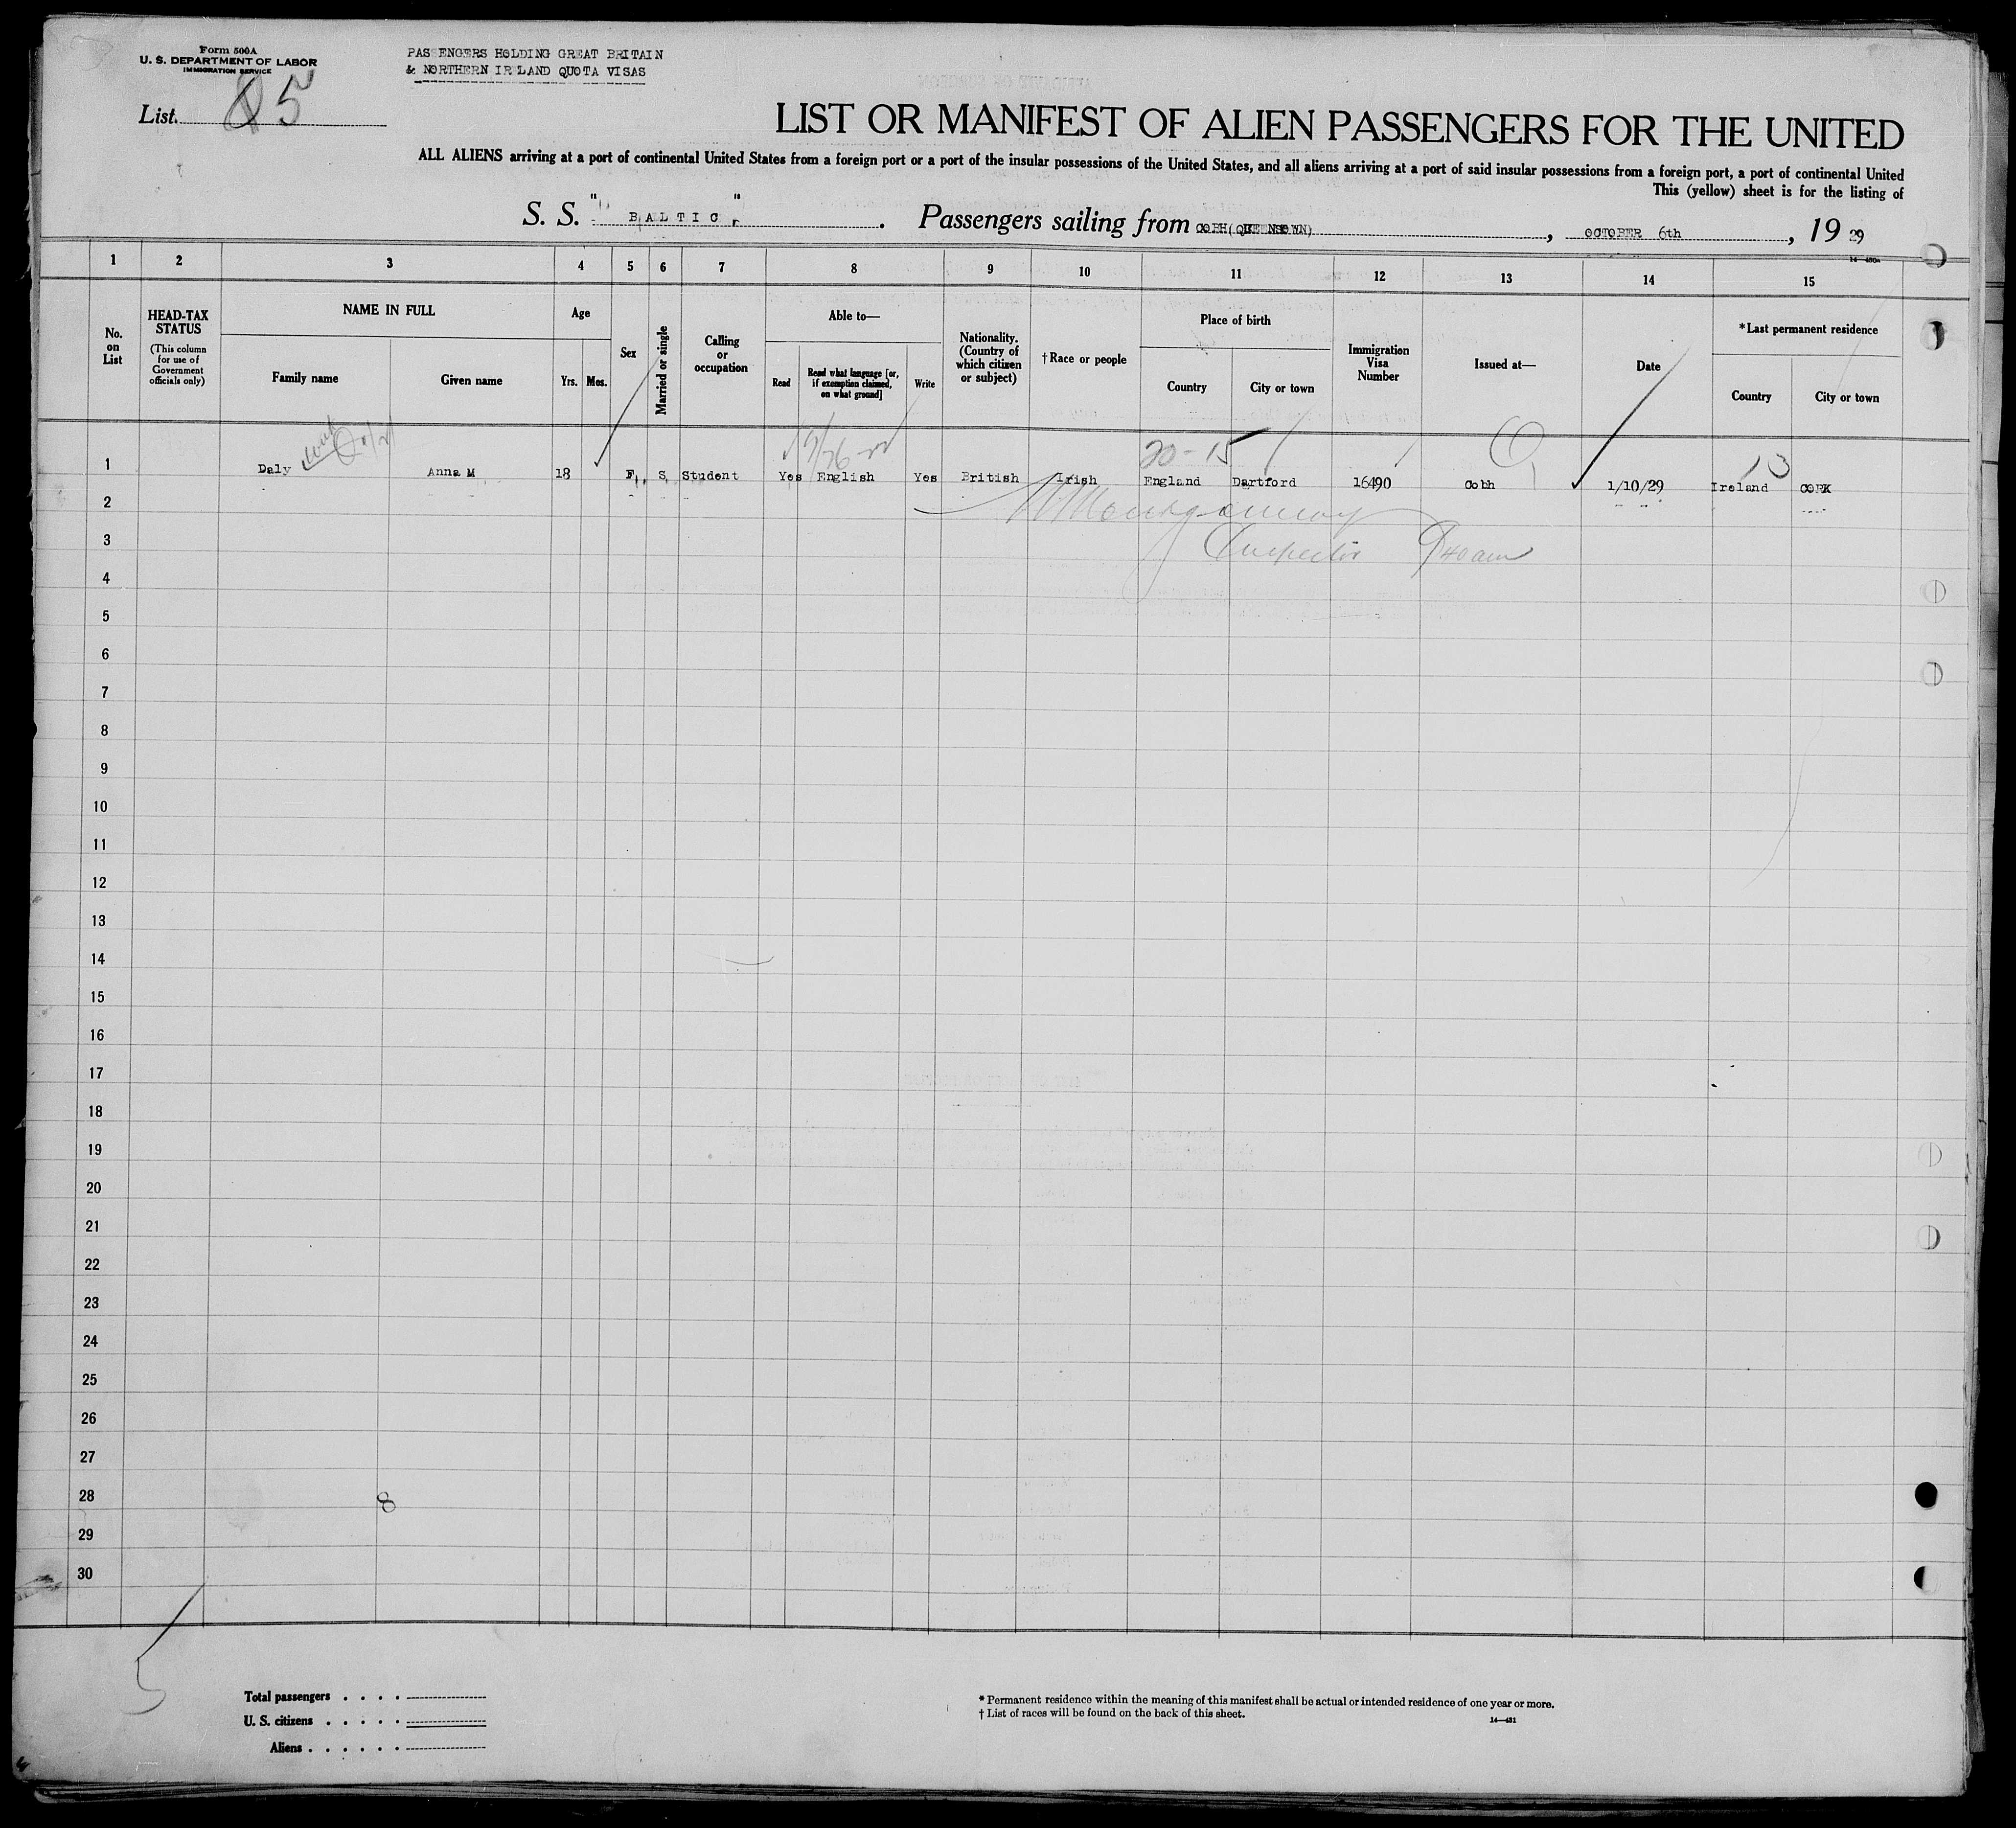 Form 500A
U. S. DEPARTMENT OF LABOR
IMMIGRATION SERVICE
PASSENGERS HOLDING GREAT BRITAIN
& NORTHERN IRELAND QUOTA VISAS
List 85
LIST OR MANIFEST OF ALIEN PASSENGERS FOR THE UNITED
ALL ALIENS arriving at a port of continental United States from a foreign port or a port of the insular possessions of the United States, and all aliens arriving at a port of said insular possessions from a foreign port, a port of continental United
This (yellow) sheet is for the listing of
S. S. " BALTIC ". Passengers sailing from COBH(QUEENSTOWN), OCTOBER 6th, 19 29
14—430a
1 2 3 4 5 6 7 8 9 10 11 12 13 14 15
No. on List
HEAD-TAX STATUS
(This column for use of Government officials only)
NAME IN FULL
Family name
Given name
Age
Yrs. Mos.
Sex
Married or single
Calling or occupation
Able to—
Read
Read what language [or, if exemption claimed, on what ground]
Write
Nationality. (Country of which citizen or subject)
†Race or people
Place of birth
Country
City or town
Immigration Visa Number
Issued at—
Date
*Last permanent residence
Country
City or town
20-15
13
1 Daly Anna M 18 F S Student Yes English Yes British Irish England Dartford 16490 Cobh 1/10/29 Ireland CORK
2
Montgomery
3
Inspector 940am
4
5
6
7
8
9
10
11
12
13
14
15
16
17
18
19
20
21
22
23
24
25
26
27
28 8
29
30
Total passengers
U. S. citizens
Aliens
* Permanent residence within the meaning of this manifest shall be actual or intended residence of one year or more.
† List of races will be found on the back of this sheet.
14—431